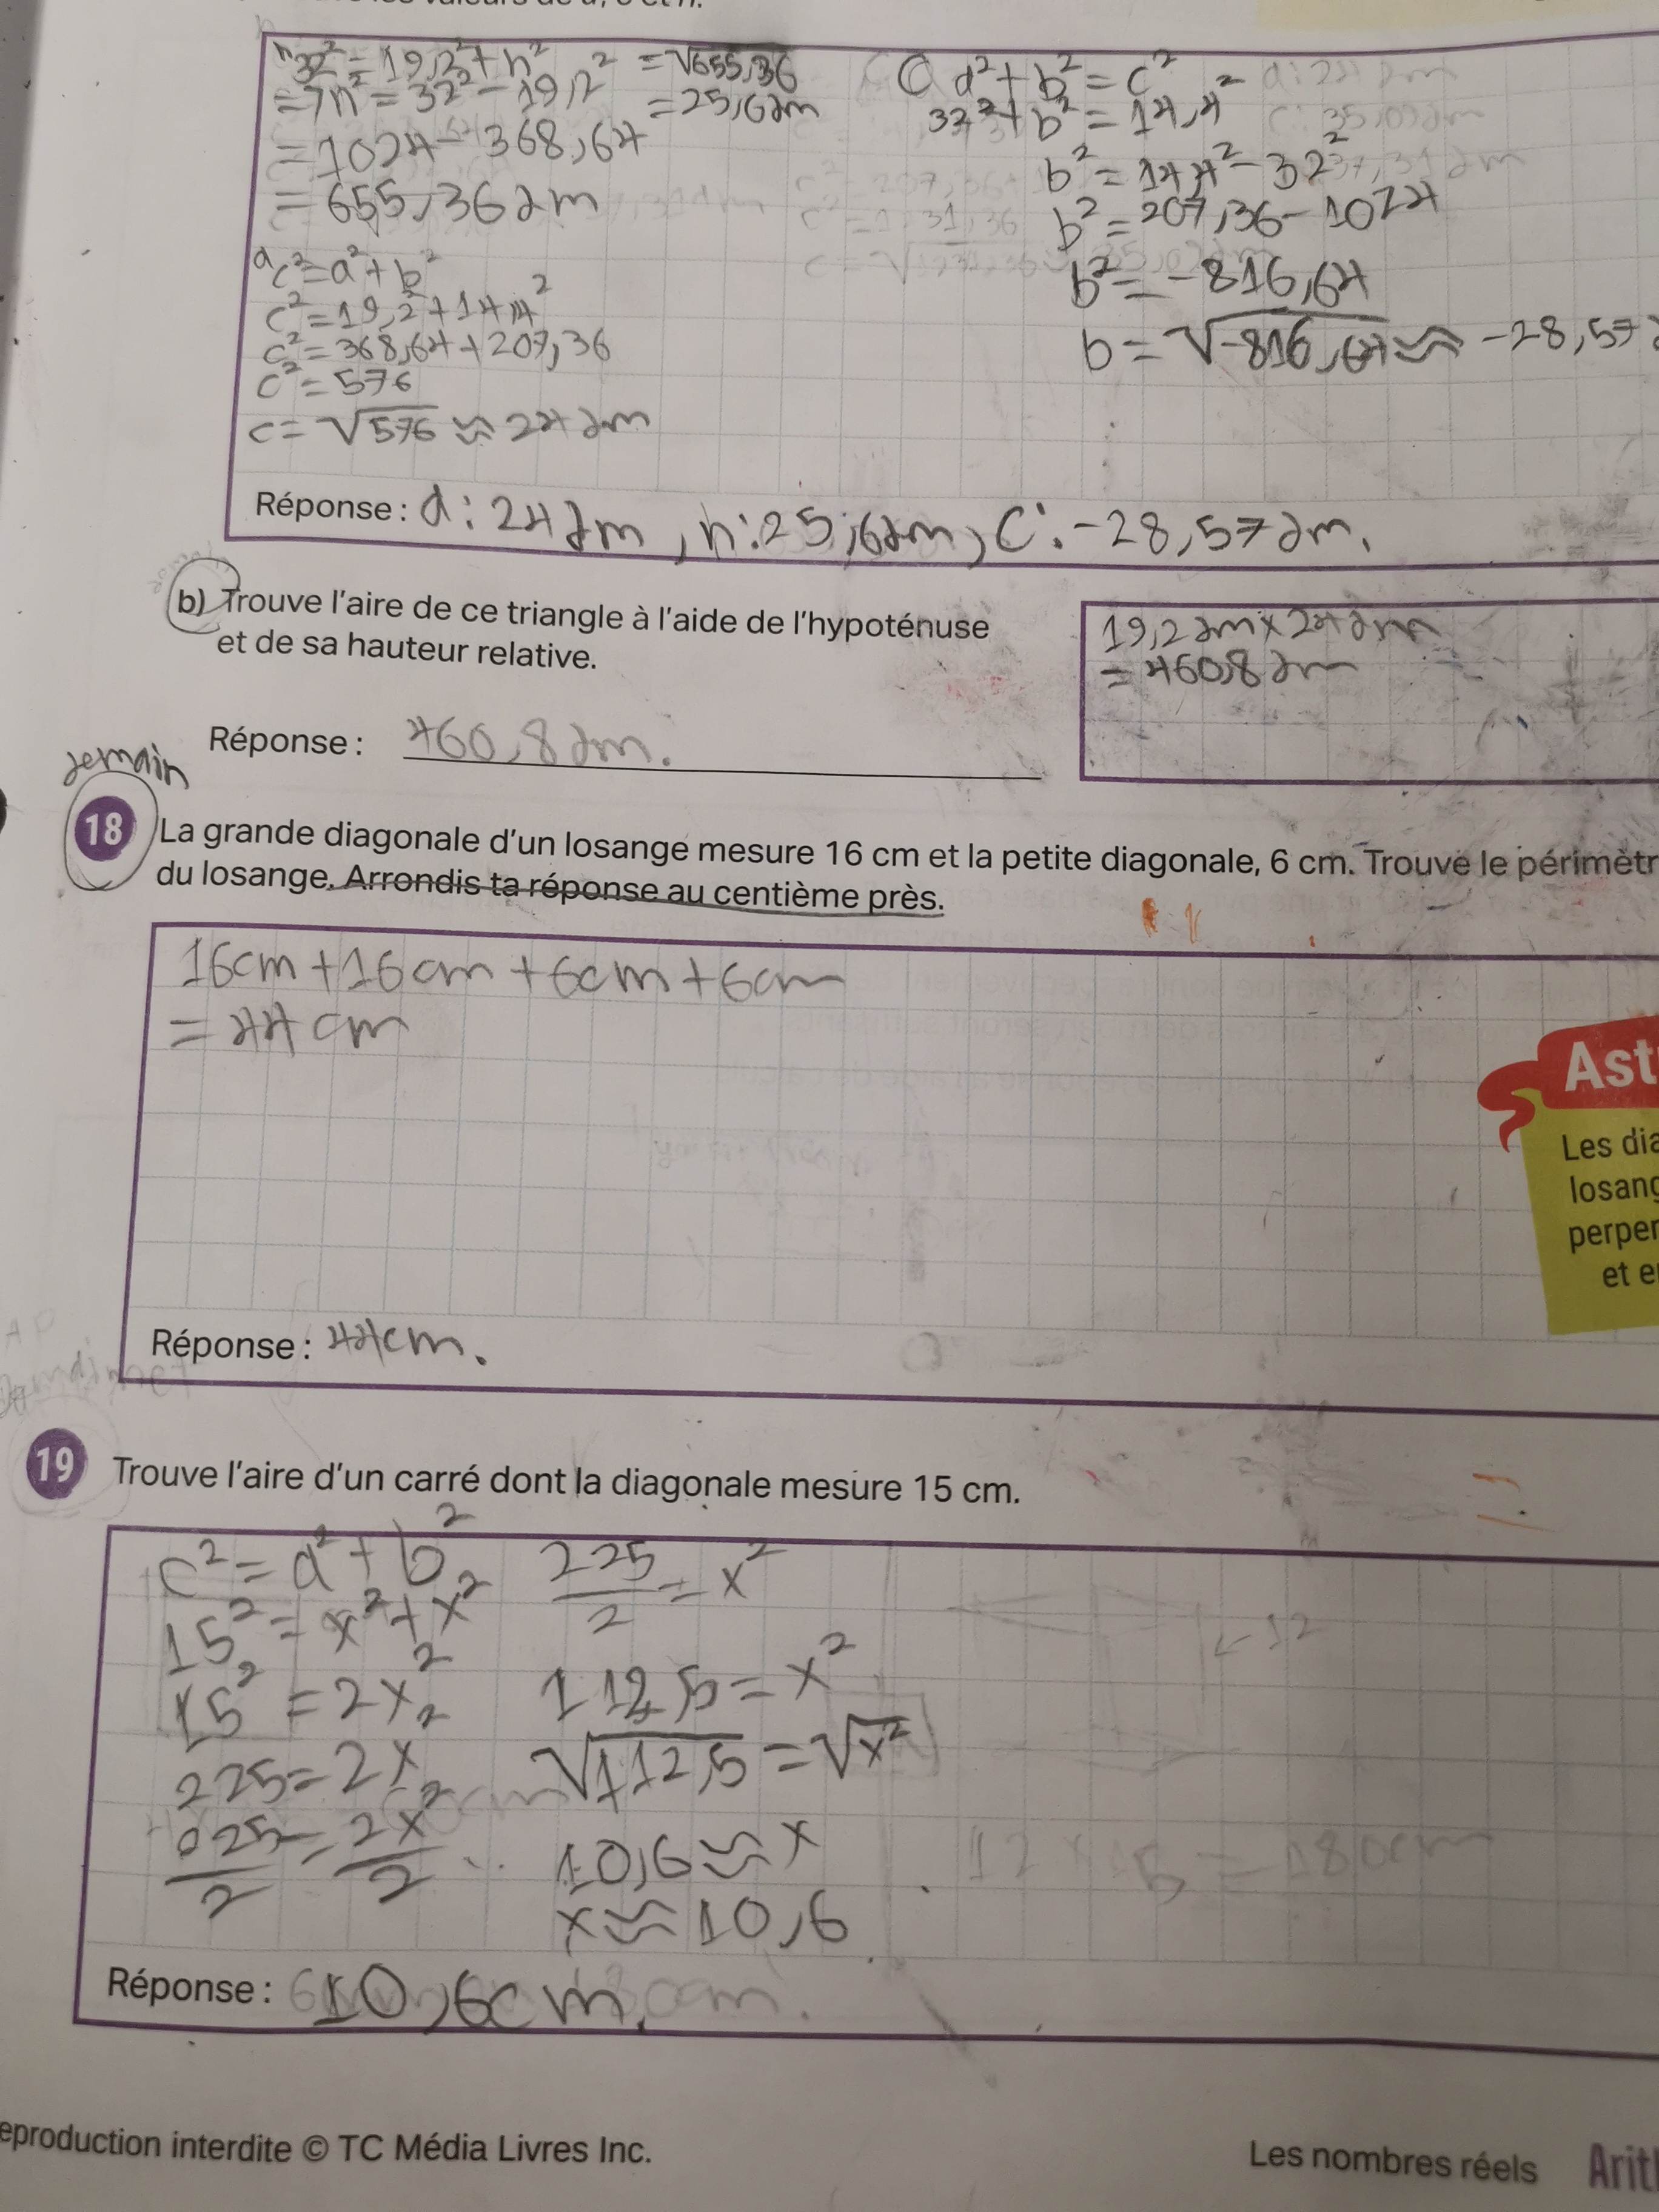 h 32² = 19,2² + h² = √655,36
= 7h² = 32² - 19,2² = 25,6dm
= 1024 - 368,64
= 655,36dm
a c² = a² + b²
c² = 19,2² + 14,4²
c² = 368,64 + 207,36
c² = 576
c = √576 ≈ 24dm
C a² + b² = c²
32² + b² = 14,4²
b² = 14,4² - 32²
b² = 207,36 - 1024
b² = -816,64
b = √-816,64 ≈ -28,57
Réponse : a : 24dm, h : 25,6dm, C : -28,57dm.
b) Trouve l'aire de ce triangle à l'aide de l'hypoténuse
et de sa hauteur relative.
19,2dm x 24dm
= 460,8dm
Réponse : 460,8dm.
demain
18 La grande diagonale d'un losange mesure 16 cm et la petite diagonale, 6 cm. Trouve le périmètr
du losange. Arrondis ta réponse au centième près.
16cm + 16cm + 6cm + 6cm
= 44cm
Ast
Les dia
losang
perper
et e
Réponse : 44cm.
19 Trouve l'aire d'un carré dont la diagonale mesure 15 cm.
c² = a² + b²
15² = x² + x²
15² = 2x²
225 = 2x²
225/2 = 2x²/2
225/2 = x²
112,5 = x²
√112,5 = √x²
10,6 ≈ x
x ≈ 10,6
← 12
12 x 15 = 180cm
Réponse : 10,6cm.
eproduction interdite © TC Média Livres Inc.
Les nombres réels Arit